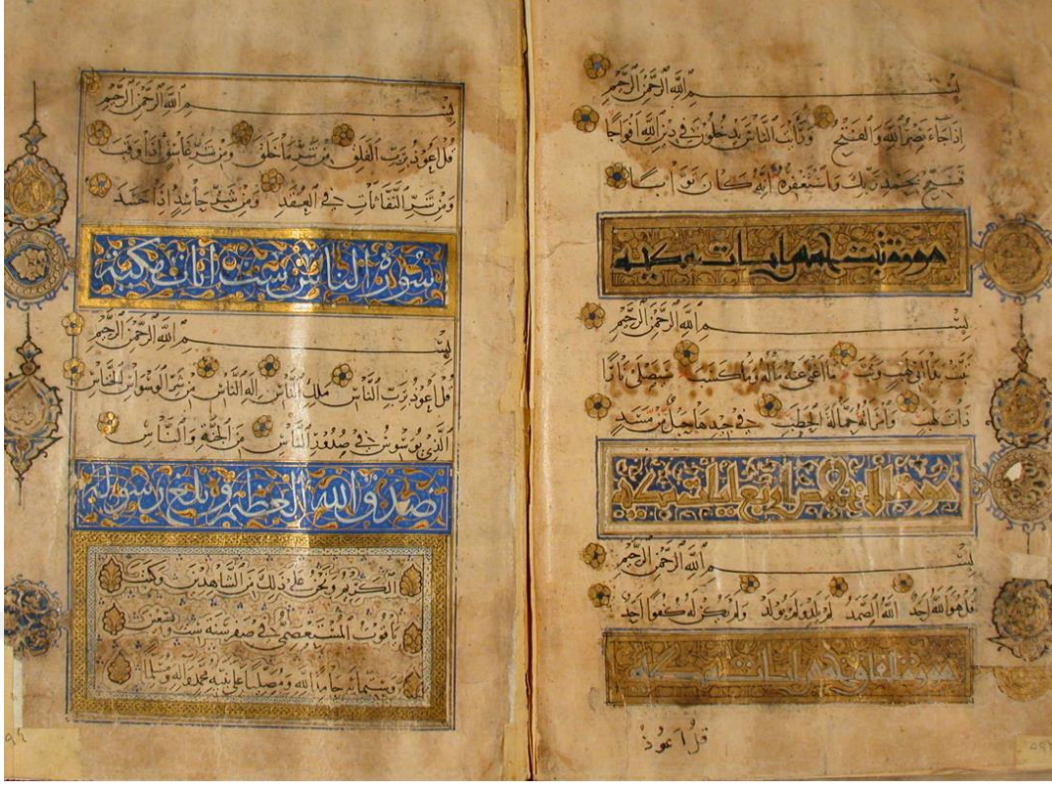 بِسْمِ اللَّهِ الرَّحْمَٰنِ الرَّحِيمِ
إِذَا جَاءَ نَصْرُ اللَّهِ وَالْفَتْحُ وَرَأَيْتَ النَّاسَ يَدْخُلُونَ فِي دِينِ اللَّهِ أَفْوَاجًا
فَسَبِّحْ بِحَمْدِ رَبِّكَ وَاسْتَغْفِرْهُ إِنَّهُ كَانَ تَوَّابًا
سورة تبت خمس ايات مكية
بِسْمِ اللَّهِ الرَّحْمَٰنِ الرَّحِيمِ
تَبَّتْ يَدَا أَبِي لَهَبٍ وَتَبَّ مَا أَغْنَى عَنْهُ مَالُهُ وَمَا كَسَبَ سَيَصْلَى نَارًا
ذَاتَ لَهَبٍ وَامْرَأَتُهُ حَمَّالَةَ الْحَطَبِ فِي جِيدِهَا حَبْلٌ مِنْ مَسَدٍ
سورة الاخلاص اربع ايات مكية
بِسْمِ اللَّهِ الرَّحْمَٰنِ الرَّحِيمِ
قُلْ هُوَ اللَّهُ أَحَدٌ اللَّهُ الصَّمَدُ لَمْ يَلِدْ وَلَمْ يُولَدْ وَلَمْ يَكُنْ لَهُ كُفُوًا أَحَدٌ
سورة الفلق ايات مكية
قل اعوذ
بِسْمِ اللَّهِ الرَّحْمَٰنِ الرَّحِيمِ
قُلْ أَعُوذُ بِرَبِّ الْفَلَقِ مِنْ شَرِّ مَا خَلَقَ وَمِنْ شَرِّ غَاسِقٍ إِذَا وَقَبَ
وَمِنْ شَرِّ النَّفَّاثَاتِ فِي الْعُقَدِ وَمِنْ شَرِّ حَاسِدٍ إِذَا حَسَدَ
سورة الناس ست ايات مكية
بِسْمِ اللَّهِ الرَّحْمَٰنِ الرَّحِيمِ
قُلْ أَعُوذُ بِرَبِّ النَّاسِ مَلِكِ النَّاسِ إِلَٰهِ النَّاسِ مِنْ شَرِّ الْوَسْوَاسِ الْخَنَّاسِ
الَّذِي يُوَسْوِسُ فِي صُدُورِ النَّاسِ مِنَ الْجِنَّةِ وَالنَّاسِ
صدق الله العظيم وبلغ رسوله
الكريم ونحن على ذلك من الشاهدين وكتب
ياقوت المستعصمي في صفر سنة ست وتسعين
وستمائة حامدا لله ومصليا على نبيه محمد وآله ومسلما